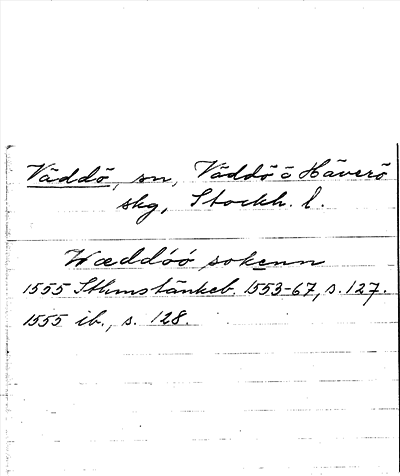 Väddö, sn, Väddö o Häverö
skg, Stockh. l.
Wæddóó sokenn
1555 Sthmstänkeb. 1553-67, s. 127.
1555 ib., s. 128.